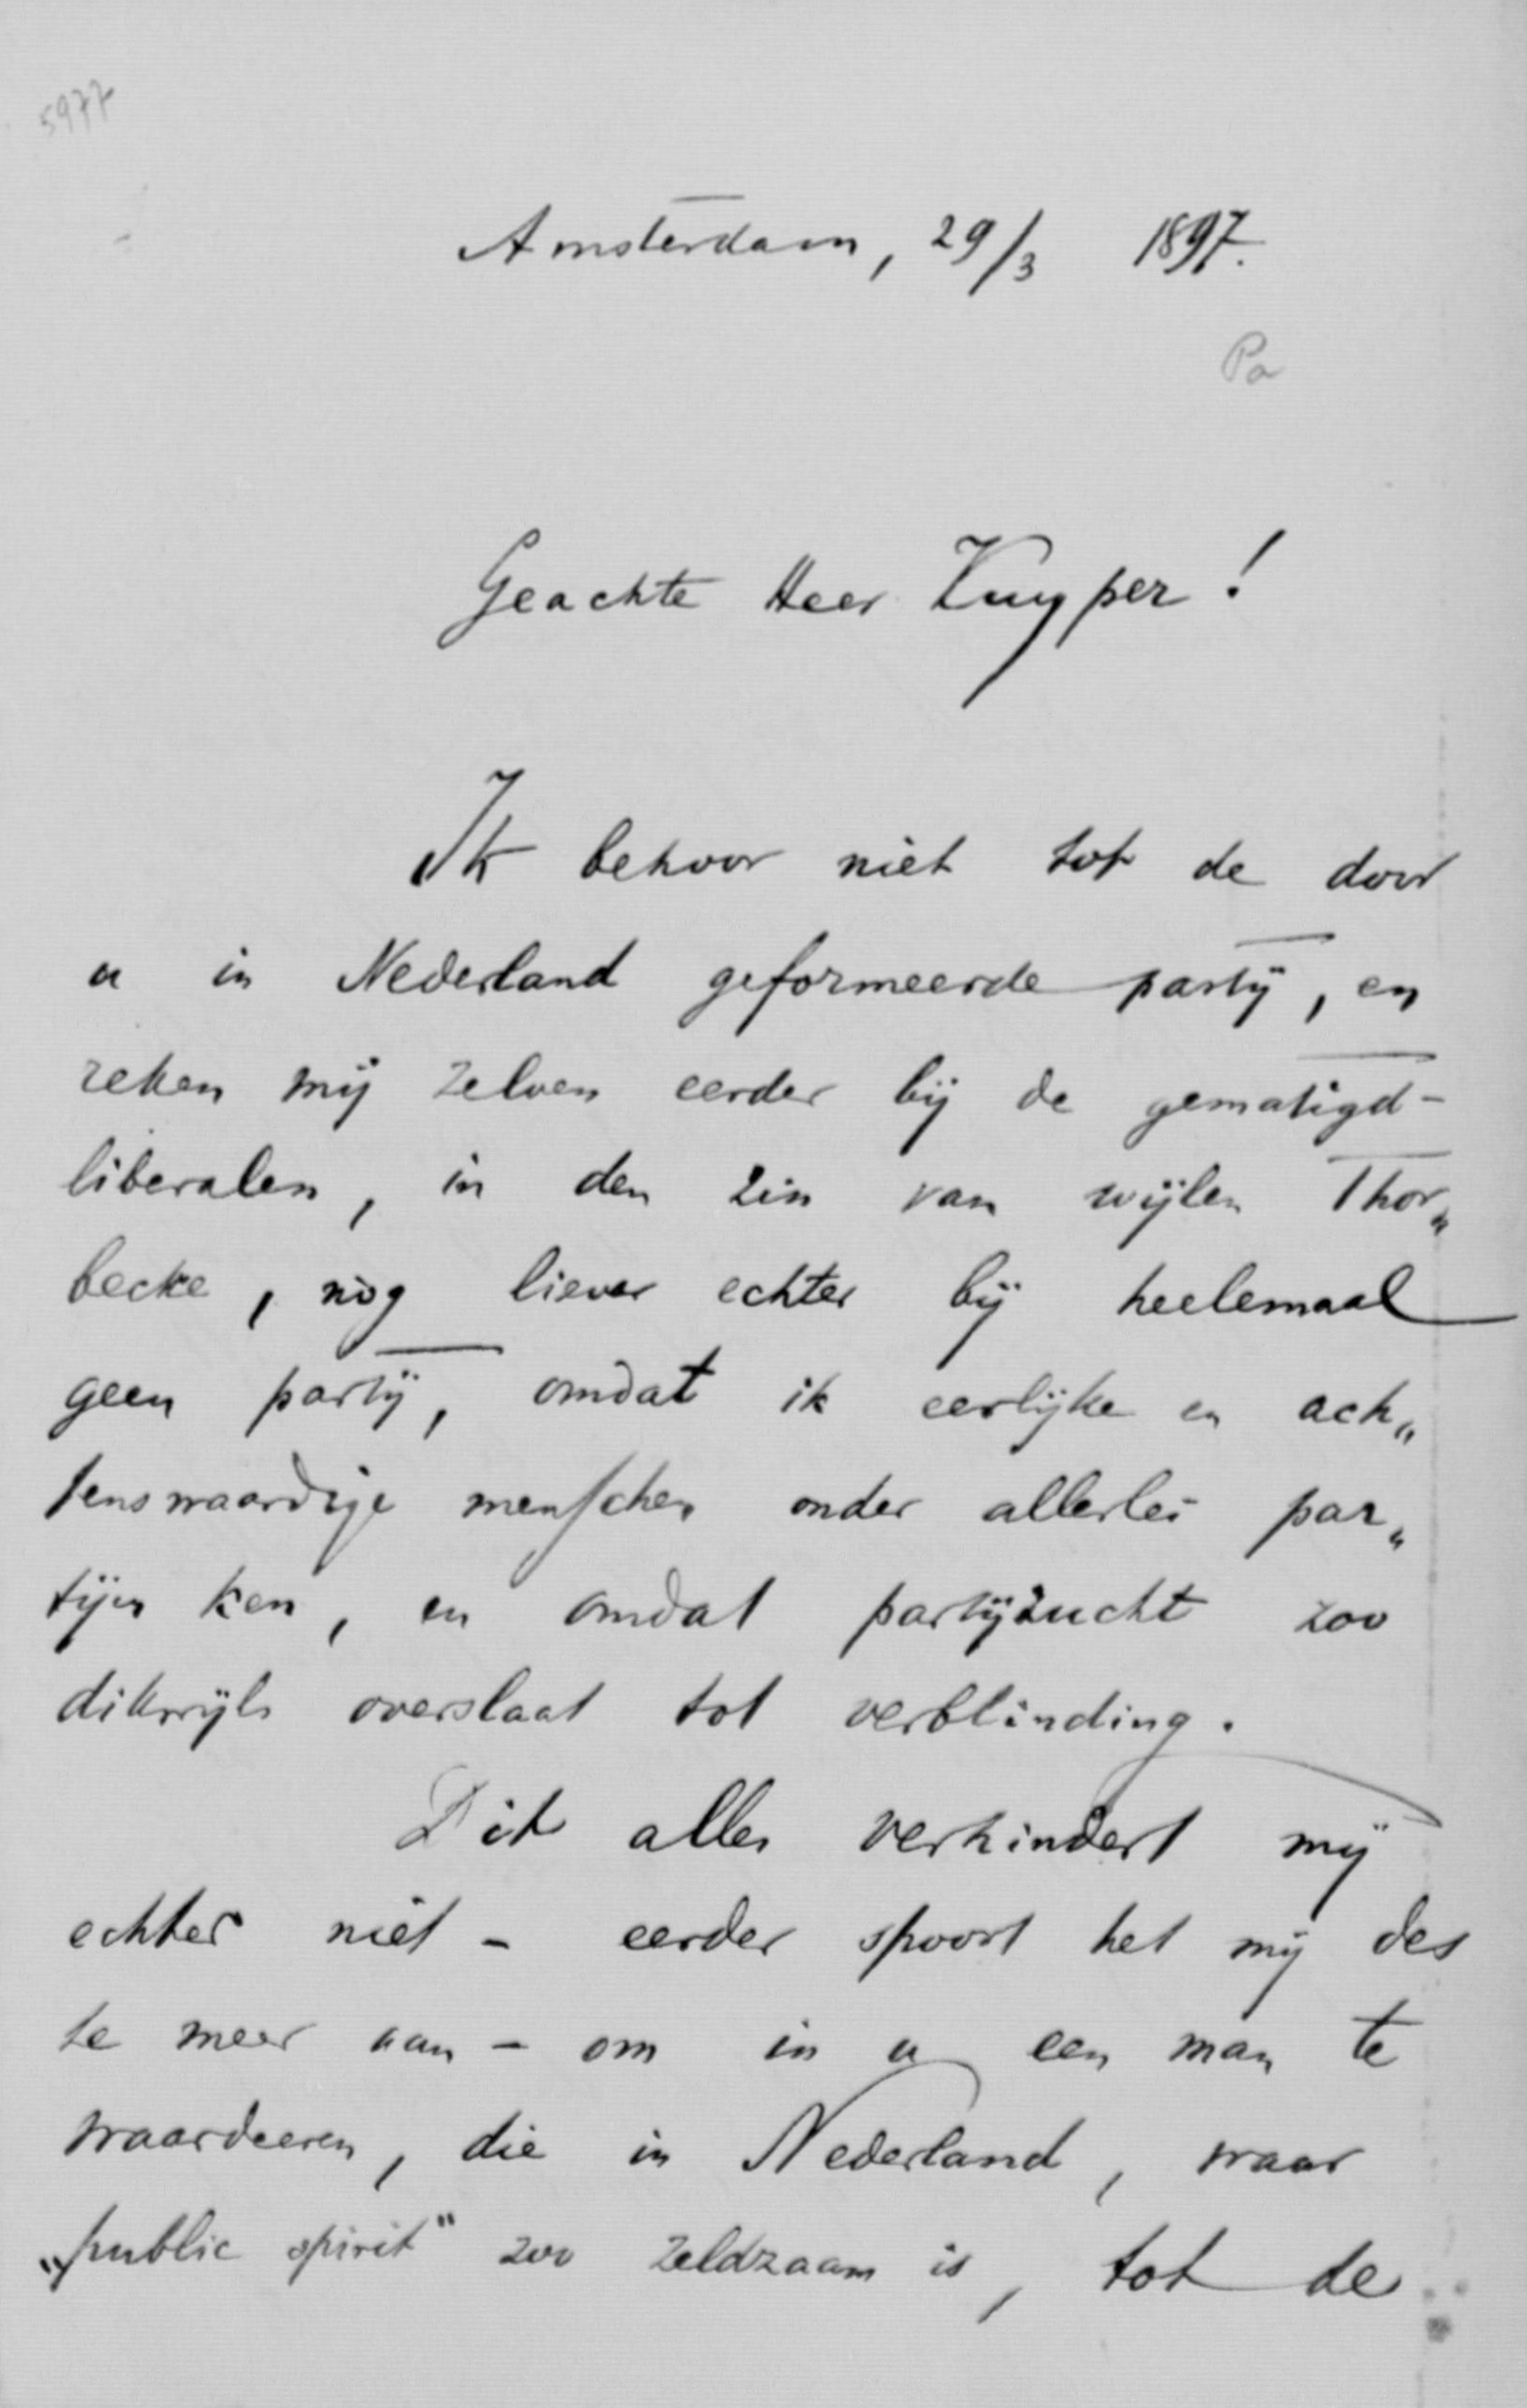 5977
Amsterdam, 29/3 1897.
Pa
Geachte Heer Kuyper!
Ik behoor niet tot de door
u in Nederland geformeerde partij, en
reken mij zelven eerder bij de gematigd-
liberalen, in den zin van wijlen Thor„
becke, nog liever echter bij heelemaal
geen partij, omdat ik eerlijke en ach„
tenswaardige menschen onder allerlei par„
tijen ken, en omdat partijzucht zoo
dikwijls overslaat tot verblinding.
Dit alles verhindert mij
echter niet - eerder spoort het mij des
te meer aan - om in u een man te
waardeeren, die in Nederland, waar
„public spirit" zoo zeldzaam is, tot de